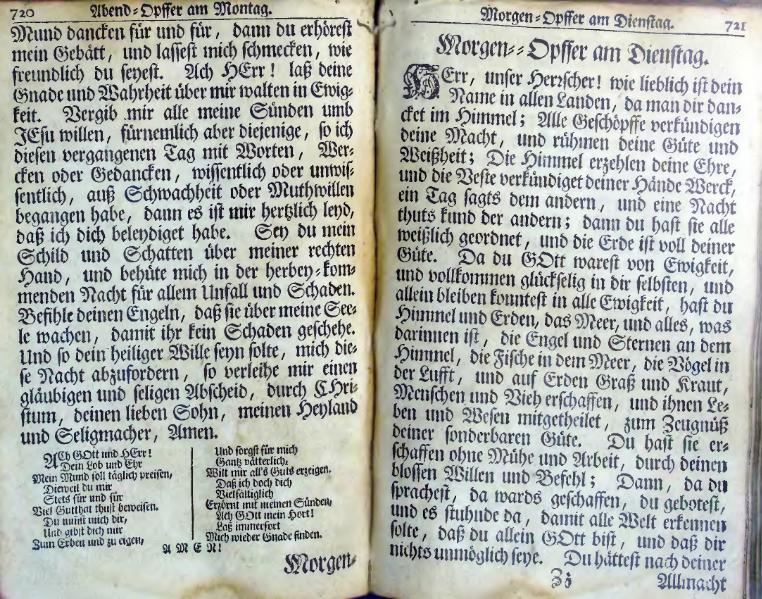 720 Abend-Opffer am Montag.
Mund dancken für und für, dann du erhörest
mein Gebätt, und lassest mich schmecken, wie
freundlich du seyest. Ach HErr! laß deine
Gnade und Wahrheit über mir walten in Ewig-
keit. Vergib mir alle meine Sünden umb
JEsu willen, fürnemlich aber diejenige, so ich
diesen vergangenen Tag mit Worten, Wer-
cken oder Gedancken, wissentlich oder unwis-
sentlich, auß Schwachheit oder Muthwillen
begangen habe, dann es ist mir hertzlich leyd,
daß ich dich beleydiget habe. Sey du mein
Schild und Schatten über meiner rechten
Hand, und behüte mich in der herbey-kom-
menden Nacht für allem Unfall und Schaden.
Befihle deinen Engeln, daß sie über meine See-
le wachen, damit ihr kein Schaden geschehe.
Und so dein heiliger Wille seyn solte, mich die-
se Nacht abzufordern, so verleihe mir einen
gläubigen und seligen Abscheid, durch CHri-
stum, deinen lieben Sohn, meinen Heyland
und Seligmacher, Amen.
ACh GOtt und HErr!
Dein Lob und Ehr
Mein Mund soll täglich preisen,
Dieweil du mir
Stets für und für
Viel Gutthat thust beweisen.
Du nimst mich dir,
Und gibst dich mir
Zum Erben und zu eigen,
Und sorgst für mich
Gantz vätterlich,
Wilt mir all's Guts erzeigen.
Daß ich doch dich
Vielfältiglich
Erzörnt mit meinen Sünden,
Ach GOtt mein Hort!
Laß immerfort
Mich wieder Gnade finden.
AMEN!
Morgen-
Morgen-Opffer am Dienstag. 721
Morgen-Opffer am Dienstag.
HErr, unser Herrscher! wie lieblich ist dein
Name in allen Landen, da man dir dan-
cket im Himmel; Alle Geschöpffe verkündigen
deine Macht, und rühmen deine Güte und
Weißheit; Die Himmel erzehlen deine Ehre,
und die Veste verkündiget deiner Hände Werck,
ein Tag sagts dem andern, und eine Nacht
thuts kund der andern; dann du hast sie alle
weißlich geordnet, und die Erde ist voll deiner
Güte. Da du GOtt warest von Ewigkeit,
und vollkommen glückselig in dir selbsten, und
allein bleiben konntest in alle Ewigkeit, hast du
Himmel und Erden, das Meer, und alles, was
darinnen ist, die Engel und Sternen an dem
Himmel, die Fische in dem Meer, die Vögel in
der Lufft, und auf Erden Graß und Kraut,
Menschen und Vieh erschaffen, und ihnen Le-
ben und Wesen mitgetheilet, zum Zeugnüß
deiner sonderbaren Güte. Du hast sie er-
schaffen ohne Mühe und Arbeit, durch deinen
blossen Willen und Befehl; Dann, da du
sprachest, da wards geschaffen, du gebotest,
und es stuhnde da, damit alle Welt erkennen
solte, daß du allein GOtt bist, und daß dir
nichts unmöglich seye. Du hättest nach deiner
Zz Allmacht